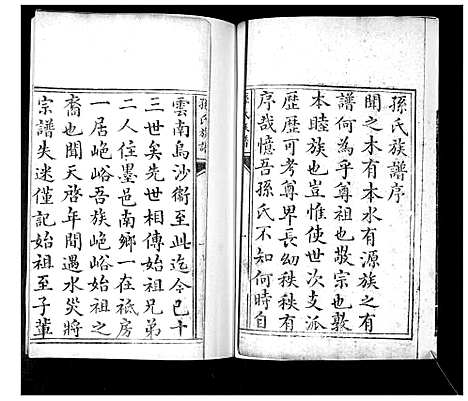 孫氏族譜序
聞之木有本水有源族之有
譜何為乎尊祖也敬宗也敦
本睦族也豈惟使世次支派
歷歷可考尊卑長幼秩秩有
序哉憶吾孫氏不知何時自
孫氏族譜
雲南烏沙衛至此迄今已十
三世矣先世相傳始祖兄弟
二人住墨邑南鄉一在祗房
一居峗峪吾族峗峪始祖之
裔也聞天啓年間遇水災將
宗譜失迷僅記始祖至子輩